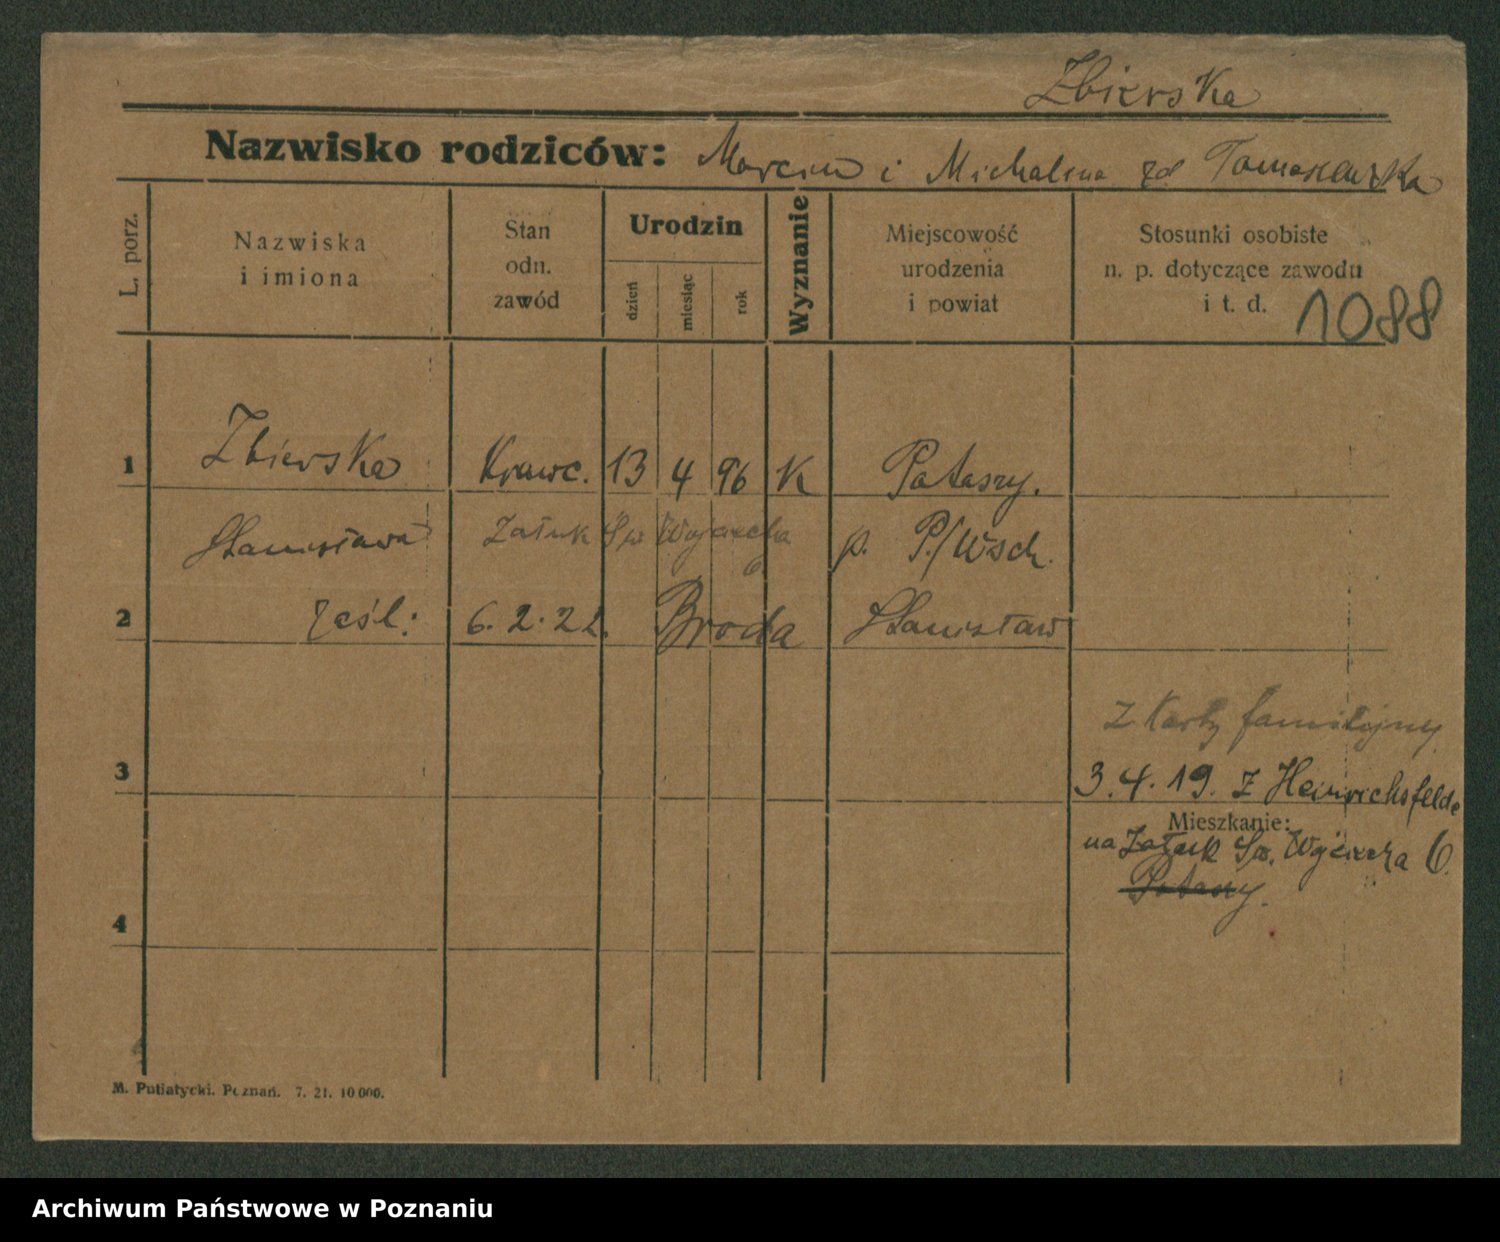 Zbierska
Nazwisko rodziców: Marcin i Michalina zd Tomaszewska
L. porz.
Nazwiska
i imiona
Stan
odn.
zawód
Urodzin
dzień
miesiąc
rok
Wyznanie
Miejscowość
urodzenia
i powiat
Stosunki osobiste
n. p. dotyczące zawodu
i t. d.
1088
1 Zbierska Krawc. 13 4 96 K Pataszy.
Stanisława Zaułek Św Wojciecha p. P./Wsch.
2 zaśl: 6.2.22. Broda Stanisław
z karty familijnej
3 3.4.19. z Heinrichsfelde
Mieszkanie:
na Zaułek Św. Wojciecha 6.
Pataszy.
4
M. Putiatycki. Poznań. 7. 21. 10.000.
Archiwum Państwowe w Poznaniu